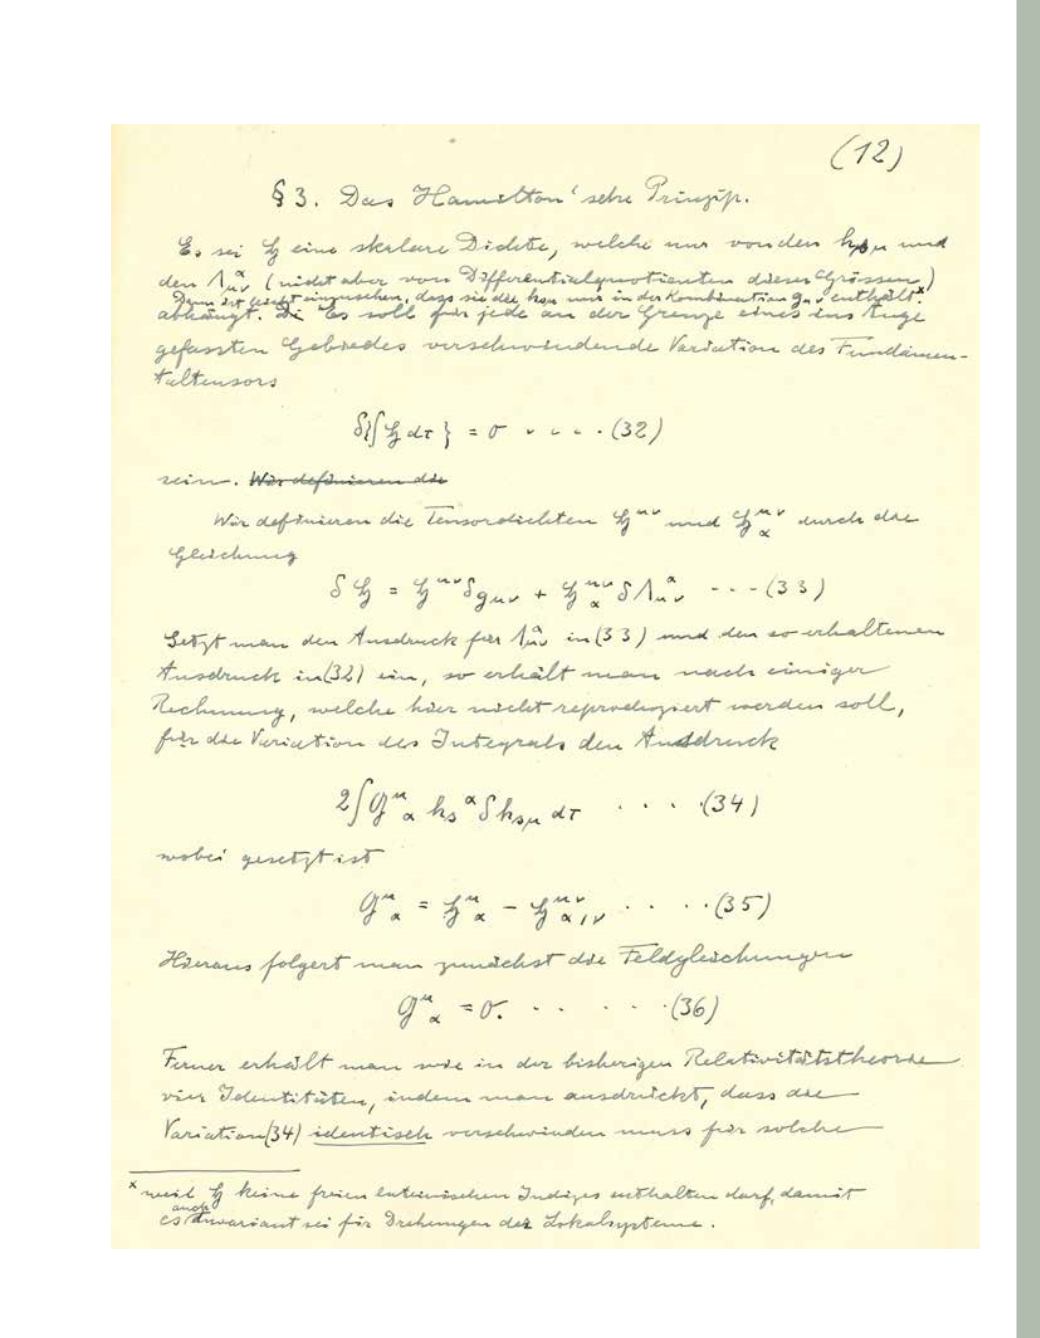 (12)
§ 3. Das Hamilton'sche Prinzip.
Es sei ℌ eine skalare Dichte, welche nur von den h_{sμ} und
den Λ^α_{μν} (nicht aber von Differentialquotienten dieser Grössen)
Dann ist leicht einzusehen, dass sie die h_{sμ} nur in der Kombination g_{μν} enthält.ˣ
abhängt. Es soll für jede an der Grenze eines ins Auge
gefassten Gebiedes verschwindende Variation des Fundamen-
taltensors
δ{∫ℌ dτ} = 0 . . . . (32)
sein. Wir definieren die
Wir definieren die Tensordichten ℌ^{μν} und ℌ_α^{μν} durch die
Gleichung
δℌ = ℌ^{μν} δg_{μν} + ℌ_α^{μν} δΛ^α_{μν} - - - (33)
Setzt man den Ausdruck für Λ^α_{μν} in (33) und den so erhaltenen
Ausdruck in (32) ein, so erhält man nach einiger
Rechnung, welche hier nicht reproduziert werden soll,
für die Variation des Integrals den Ausdruck
2∫𝔊^μ_α h_s^α δh_{sμ} dτ . . . . (34)
wobei gesetzt ist
𝔊^μ_α = ℌ^μ_α − ℌ^{μν}_{α/ν} . . . . (35)
Hieraus folgert man zunächst die Feldgleichungen
𝔊^μ_α = 0. . . . . . (36)
Ferner erhält man wie in der bisherigen Relativitätstheorie
vier Identitäten, indem man ausdrückt, dass die
Variation (34) identisch verschwinden muss für solche
ˣ weil ℌ keine freien lateinischen Indizes enthalten darf, damit
es auch invariant sei für Drehungen der Lokalsysteme.